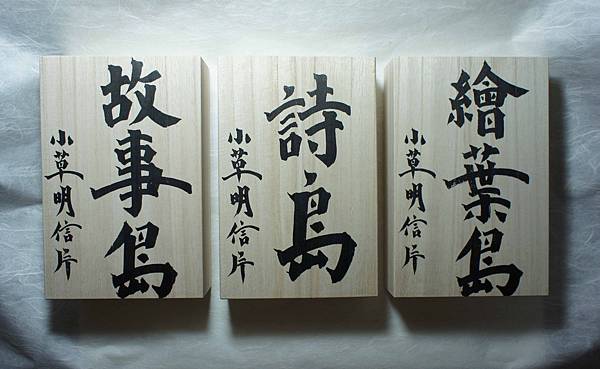 故事島
小草明信片
詩島
小草明信片
繪葉島
小草明信片